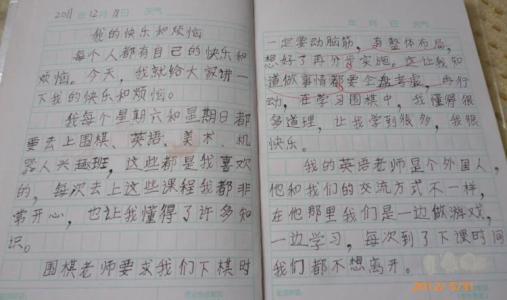 2011年12月11日 天气
我的快乐和烦恼
每个人都有自已的快乐和
烦恼。今天,我就给大家讲一
下我的快乐和烦恼。
我每个星期六和星期日都
要去上围棋、英语、美术、机
器人兴趣班,这些都是我喜欢
的,每次去上这些课程我都非
常开心,也让我懂得了许多知
识。
围棋老师要求我们下棋时
年 月 日 天气
一定要动脑筋,有整体布局,
想好了再分步实施。这让我知
道做事情都要全盘考虑,再行
动,在学习围棋中,我懂得很
多道理,让我学到很多,我很
快乐。
我的英语老师是个外国人,
他和我们的交流方式不一样,
在他那里我们是一边做游戏,
一边学习,每次到了下课时间
我们都不想离开。
2012/5/31